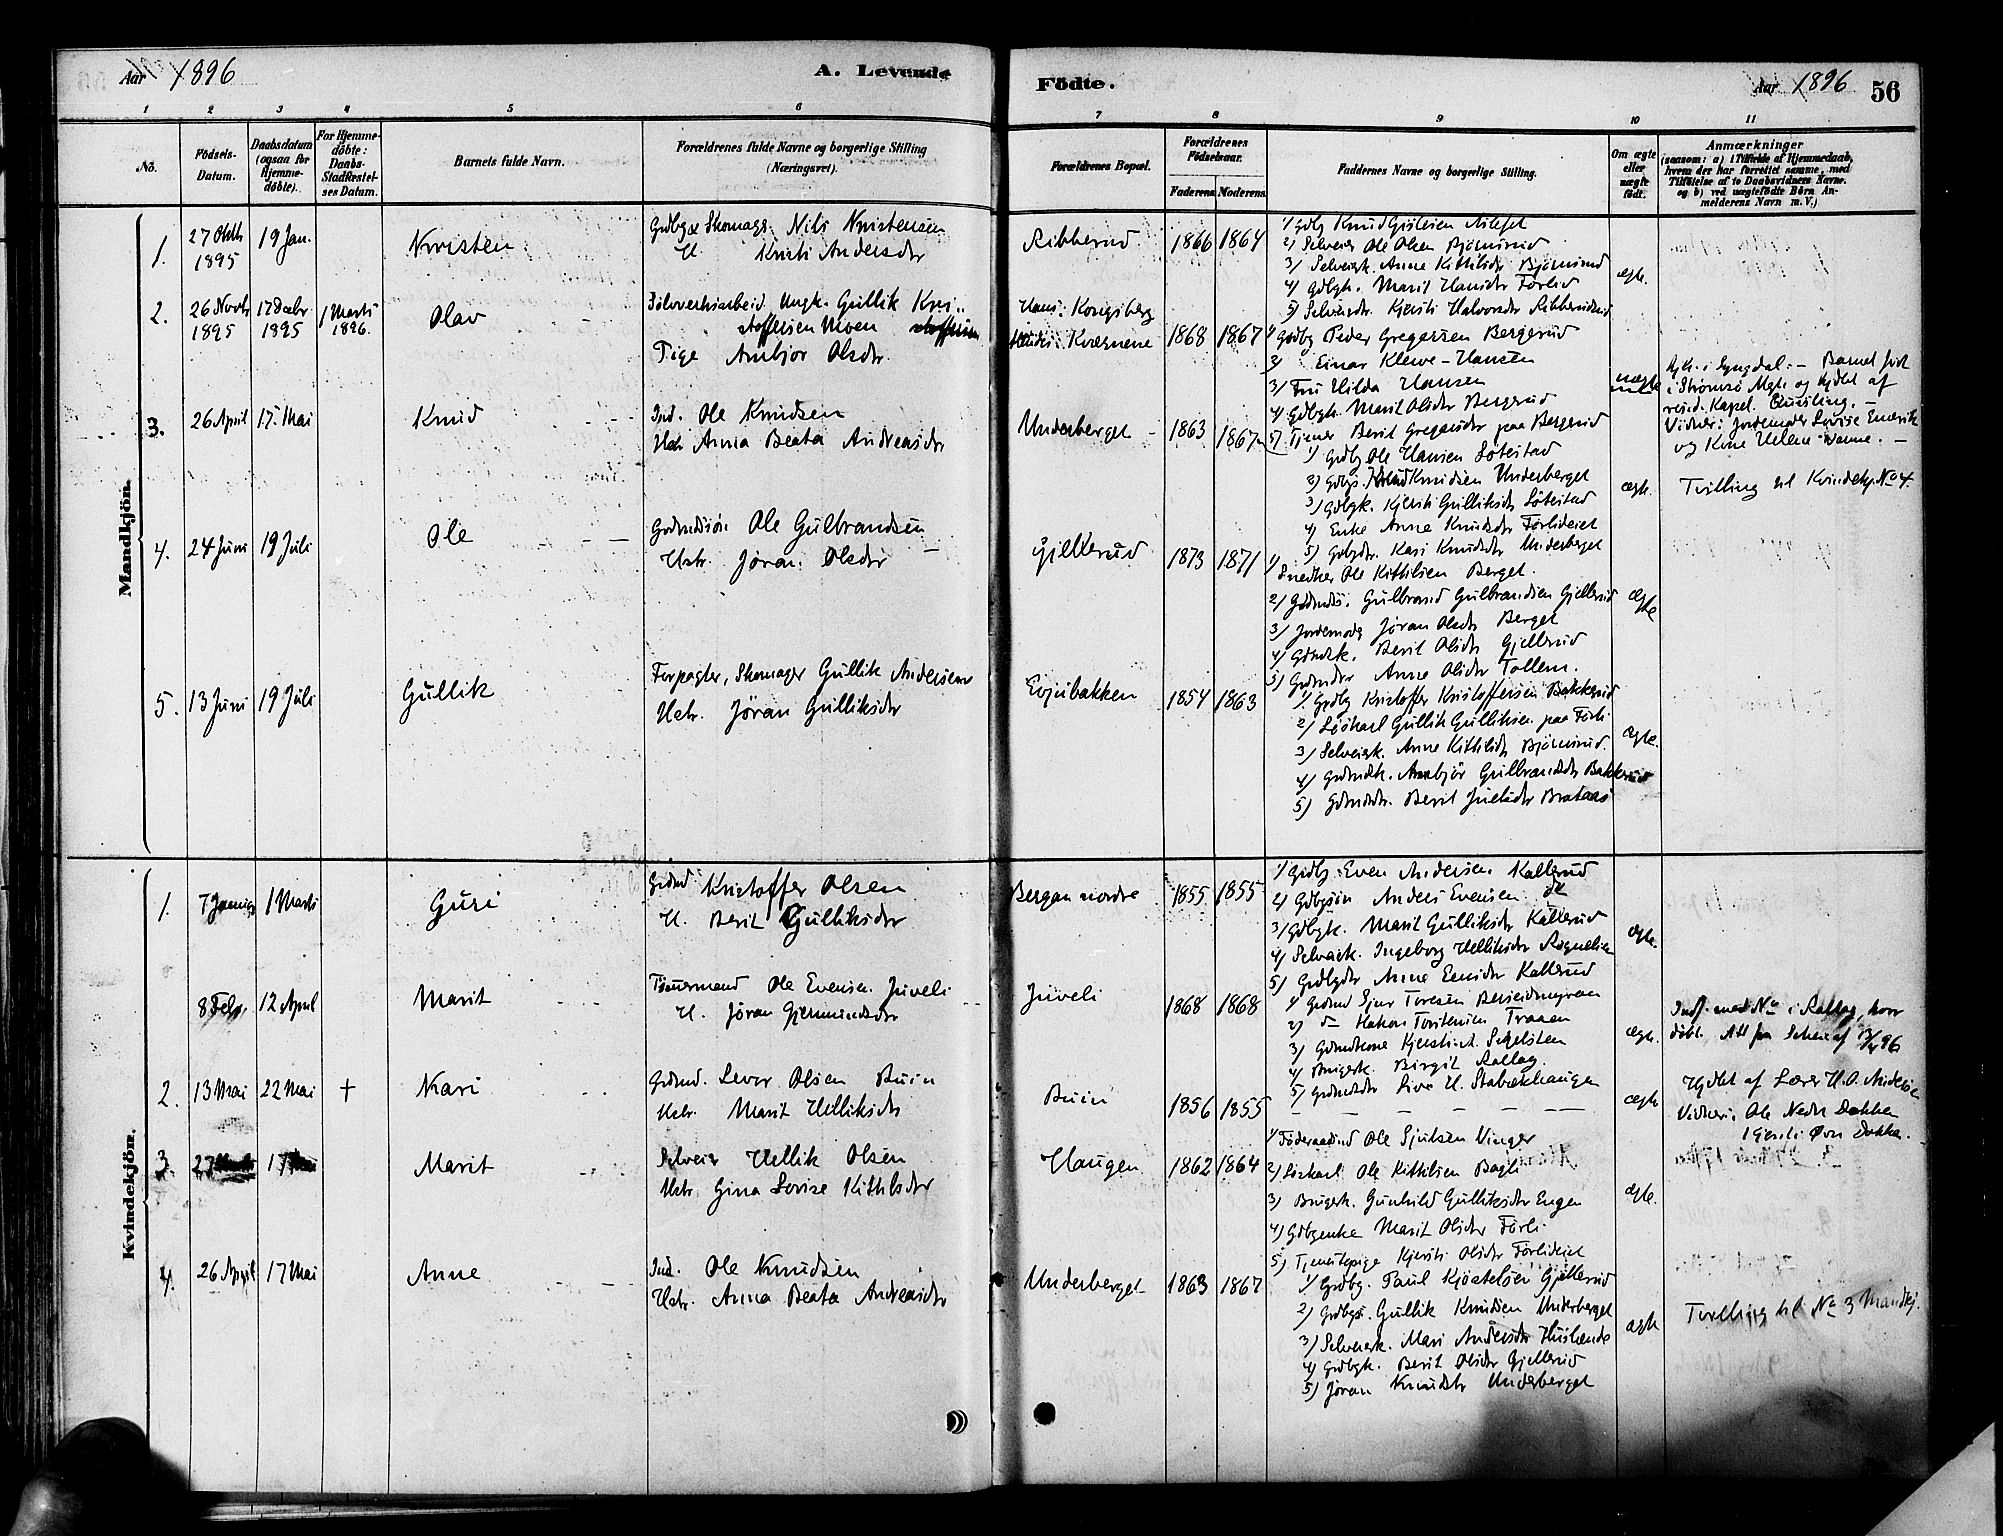 Aar 1896
A. Levende
Födte.
Aar 1896
56
1 2 3 4 5 6 7 8 9 10 11
No.
Födsels-
Datum.
Daabsdatum
(ogsaa for
Hjemme-
döbte).
For Hjemme-
döbte:
Daabs-
Stadfæstel-
ses Datum.
Barnets fulde Navn.
Forældrenes fulde Navne og borgerlige Stilling
(Næringsvei).
Forældrenes Bopæl.
Forældrenes
Födselsaar.
Faderens. Moderens.
Faddernes Navne og borgerlige Stilling.
Om ægte
eller
uægte
födt.
Anmærkninger
(saasom: a) i Tilfælde af Hjemmedaab,
hvem der har forrettet samme, med
Tilföielse af to Daabsvidners Navne,
og b) ved uægtefödte Börn An-
melderens Navn m. V.)
Mandkjön.
1. 27 Oktb 1895
19 Jan.
Kristen
Gdbg & Skomag. Nils Kristensen
H. Kristi Andersdr
Ribberud
1866 1864
1) Gdbg Knud Gislesen
2) Selveier Ole Olsen Björnsrud
3) Selveigk. Anne Kittilsdr Björnsrud
4) Gdbgk. Marit Hansdr Förlid
5) Selveierdr. Kjersti Halvorsdr Ribberud
ægte
2. 26 Novbr 1895
17 Decbr 1895
1 Marts 1896.
Olav
Sölvverksarbeid. Ungk. Gullik Kri-
stoffersen Moen
Pige Anbjor Olsdr
Hans: Kongsberg
Hendes: Kværnene
1868 1867
1) Gdbg Peder Gregersen Bergerud
2) Einar Klewe-Hansen
3) Fru Hilda Hansen
4) Gdbgk. Marit Olsdr Bergerud
5) Tjener Berit Gregersdr paa Bergerud
uægte
i Lyngdal. - Barnet født
i Strømsø Mgh. og Hjdbt af
resid. Kapel. Quisling. -
Vidner: Jordemoder Lovise Enerik
og Kone Helene Hanne. -
3. 26 April
17. Mai
Knud
Ind. Ole Knudsen
Hstr Anna Beata Andreasdr
Underberget
1863 1867
1) Gdbg Ole Hansen Lötestad
2) Gdbgs. Knud Knudsen Underberget
3) Gdbgk. Kjersti Gulliksdr Lötestad
4) Enke Anne Knudsdr Förlideiet
5) Gdbgdr. Kari Knudsdr Underberget
ægte.
Tvilling til Kvindekj. No 4.
4. 24 Juni
19 Juli
Ole
Gdmdssön Ole Gulbrandsen
Hstr. Jöran Olsdr
Gjellerud
1873 1871
1) Snedker Ole Kittilsen Berget.
2) Gdmds. Gulbrand Gulbrandsen Gjellerud
3) Jordemoder Jöran Olsdr Berget
4) Gdmdk. Berit Olsdr Gjellerud
5) Gdmddr Anne Olsdr Tollem.
ægte
5. 13 Juni
19 Juli
Gullik
Forpagter, Skomager Gullik Andersen
Hstr. Jöran Gulliksdr
Evjubakken
1854 1863
1) Gdbg Kristoffer Kristoffersen Bakkerud
2) Löskarl Gullik Gulliksen paa Förli
3) Selveigk. Anne Kittilsdr Björnsrud.
4) Gdmdk. Anbjör Gulbrandsdr Bakkerud
5) Gdmddr. Berit Juelsdr Brataas
ægte.
Kvindekjön.
1. 7 Januar
1 Marts
Guri
Gdmd Kristoffer Olsen
H. Berit Gulliksdr
Bergan nordre
1855 1855
1) Gdbg. Even Andersen Kallerud
2) Gdbgsön Anders Evensen do
3) Gdbgk. Marit Gulliksdr Kallerud
4) Selveierk. Ingeborg Helliksdr
5) Gdbgdr Anne Evensdr Kallerud
ægte.
8 Feb.
12 April
Marit
Tömmermand Ole Evensen Juveli
H. Jöran Gjermundsdr
Juveli
1868 1868
1) Gdmd Sjur Toresen
2) do Hakon Torstensen Traaen
3) Gdmdkone Kjersti
4) Brugerk. Birgit Rollag.
5) Gdmddr Live H. Stabækhaugen
ægte.
Indf. med No i Rollag, hvor
döbt. Att fra
2. 13 Mai
22 Mai
†
Kari
Gdmd. Lever Olsen Buin
Hstr. Marit Helliksdr
Buin
1856 1855
- - - - - -
ægte
Hjdbt af Lærer H.O. Andersen
Vidner: Ole Nedr Dokken
Kjersti Övre Dokka.
3. 27
17 Mai
Marit
Selveier Hellik Olsen
Hstr Gina Lovise Kittilsdr
Haugen
1862 1864
1) Föderaadmd Ole Sjulsen Vinger
2) Löskarl Ole Kittilsen Bagli
3) Brugerk. Gunhild Gulliksdr Engen
4) Gdbgenke Marit Olsdr Förli
5) Tjenestepige Kjersti Olsdr Förlideiet
ægte.
4. 26 April
17 Mai
Anne
Ind. Ole Knudsen
Hstr. Anna Beata Andreasdr
Underberget
1863 1867
1) Gdbg. Paul Kjöstelsen Gjellerud
2) Gdbgs. Gullik Knudsen Underberget
3) Selveierk. Mari Andersdr
4) Gdbgk. Berit Olsdr Gjellerud
5) Jöran Knudsdr Underberget
ægte
Tvilling til No 3 Mandkj.